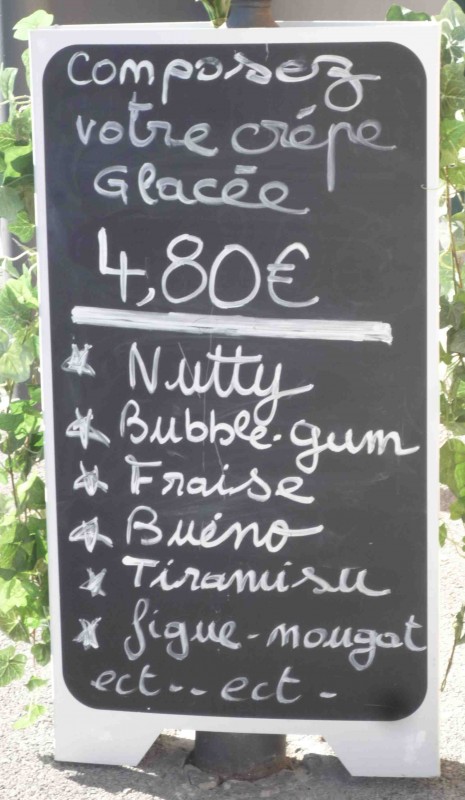 Composez
votre crêpe
Glacée
4,80€
Nutty
Bubble-gum
Fraise
Buéno
Tiramisu
figue-nougat
ect-- ect-